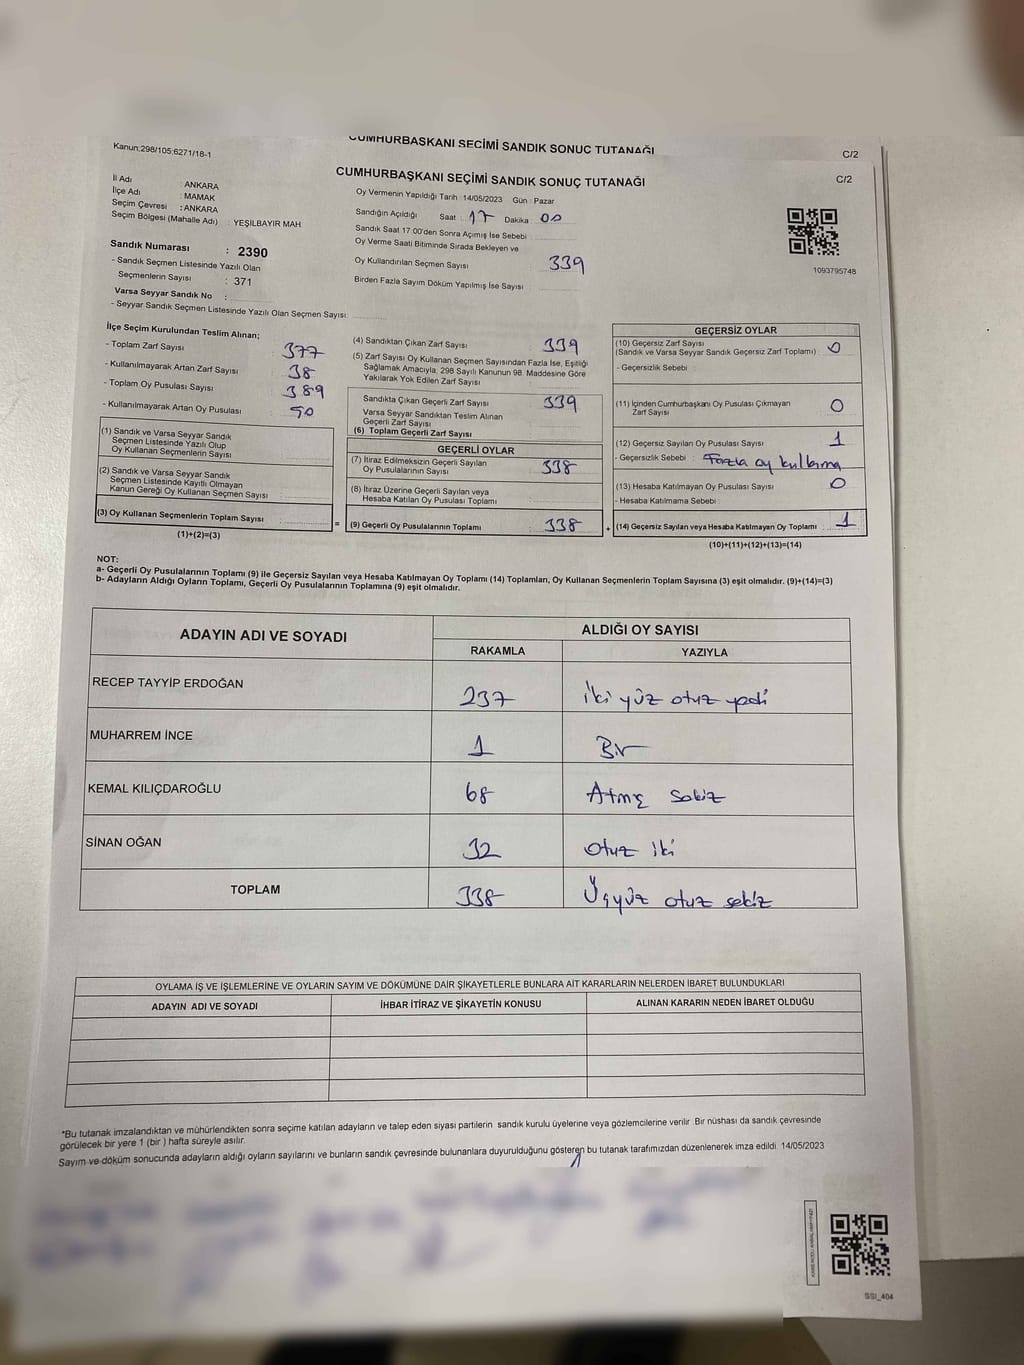 CUMHURBAŞKANI SEÇİMİ SANDIK SONUÇ TUTANAĞI
Kanun:298/105;6271/18-1
C/2
CUMHURBAŞKANI SEÇİMİ SANDIK SONUÇ TUTANAĞI
C/2
İl Adı : ANKARA
İlçe Adı : MAMAK
Seçim Çevresi : ANKARA
Seçim Bölgesi (Mahalle Adı) : YEŞİLBAYIR MAH
Sandık Numarası : 2390
- Sandık Seçmen Listesinde Yazılı Olan
Seçmenlerin Sayısı : 371
Varsa Seyyar Sandık No :
- Seyyar Sandık Seçmen Listesinde Yazılı Olan Seçmen Sayısı:
Oy Vermenin Yapıldığı Tarih 14/05/2023 Gün : Pazar
Sandığın Açıldığı Saat : 17 Dakika : 00
Sandık Saat 17:00'den Sonra Açımış İse Sebebi
Oy Verme Saati Bitiminde Sırada Bekleyen ve
Oy Kullandırılan Seçmen Sayısı 339
Birden Fazla Sayım Döküm Yapılmış İse Sayısı
1093795748
İlçe Seçim Kurulundan Teslim Alınan;
- Toplam Zarf Sayısı 377
- Kullanılmayarak Artan Zarf Sayısı 38
- Toplam Oy Pusulası Sayısı 389
- Kullanılmayarak Artan Oy Pusulası 50
(1) Sandık ve Varsa Seyyar Sandık
Seçmen Listesinde Yazılı Olup
Oy Kullanan Seçmenlerin Sayısı
(2) Sandık ve Varsa Seyyar Sandık
Seçmen Listesinde Kayıtlı Olmayan
Kanun Gereği Oy Kullanan Seçmen Sayısı
(3) Oy Kullanan Seçmenlerin Toplam Sayısı
(1)+(2)=(3)
=
(4) Sandıktan Çıkan Zarf Sayısı 339
(5) Zarf Sayısı Oy Kullanan Seçmen Sayısından Fazla İse, Eşitliği
Sağlamak Amacıyla, 298 Sayılı Kanunun 98. Maddesine Göre
Yakılarak Yok Edilen Zarf Sayısı
Sandıkta Çıkan Geçerli Zarf Sayısı 339
Varsa Seyyar Sandıktan Teslim Alınan
Geçerli Zarf Sayısı
(6) Toplam Geçerli Zarf Sayısı
GEÇERLİ OYLAR
(7) İtiraz Edilmeksizin Geçerli Sayılan
Oy Pusulalarının Sayısı 338
(8) İtiraz Üzerine Geçerli Sayılan veya
Hesaba Katılan Oy Pusulası Toplamı
(9) Geçerli Oy Pusulalarının Toplamı 338
+
GEÇERSİZ OYLAR
(10) Geçersiz Zarf Sayısı 0
(Sandık ve Varsa Seyyar Sandık Geçersiz Zarf Toplamı)
- Geçersizlik Sebebi
(11) İçinden Cumhurbaşkanı Oy Pusulası Çıkmayan
Zarf Sayısı 0
(12) Geçersiz Sayılan Oy Pusulası Sayısı 1
- Geçersizlik Sebebi : Fazla oy kullanma
(13) Hesaba Katılmayan Oy Pusulası Sayısı 0
- Hesaba Katılmama Sebebi
(14) Geçersiz Sayılan veya Hesaba Katılmayan Oy Toplamı 1
(10)+(11)+(12)+(13)=(14)
NOT:
a- Geçerli Oy Pusulalarının Toplamı (9) ile Geçersiz Sayılan veya Hesaba Katılmayan Oy Toplamı (14) Toplamları, Oy Kullanan Seçmenlerin Toplam Sayısına (3) eşit olmalıdır. (9)+(14)=(3)
b- Adayların Aldığı Oyların Toplamı, Geçerli Oy Pusulalarının Toplamına (9) eşit olmalıdır.
ADAYIN ADI VE SOYADI
ALDIĞI OY SAYISI
RAKAMLA YAZIYLA
RECEP TAYYİP ERDOĞAN 237 İki yüz otuz yedi
MUHARREM İNCE 1 Bir
KEMAL KILIÇDAROĞLU 68 Atmış Sekiz
SİNAN OĞAN 32 Otuz iki
TOPLAM 338 Üçyüz otuz sekiz
OYLAMA İŞ VE İŞLEMLERİNE VE OYLARIN SAYIM VE DÖKÜMÜNE DAİR ŞİKAYETLERLE BUNLARA AİT KARARLARIN NELERDEN İBARET BULUNDUKLARI
ADAYIN ADI VE SOYADI İHBAR İTİRAZ VE ŞİKAYETİN KONUSU ALINAN KARARIN NEDEN İBARET OLDUĞU
*Bu tutanak imzalandıktan ve mühürlendikten sonra seçime katılan adayların ve talep eden siyasi partilerin sandık kurulu üyelerine veya gözlemcilerine verilir. Bir nüshası da sandık çevresinde
görülecek bir yere 1 (bir ) hafta süreyle asılır.
Sayım ve döküm sonucunda adayların aldığı oyların sayılarını ve bunların sandık çevresinde bulunanlara duyurulduğunu gösteren bu tutanak tarafımızdan düzenlenerek imza edildi. 14/05/2023
SSI_404